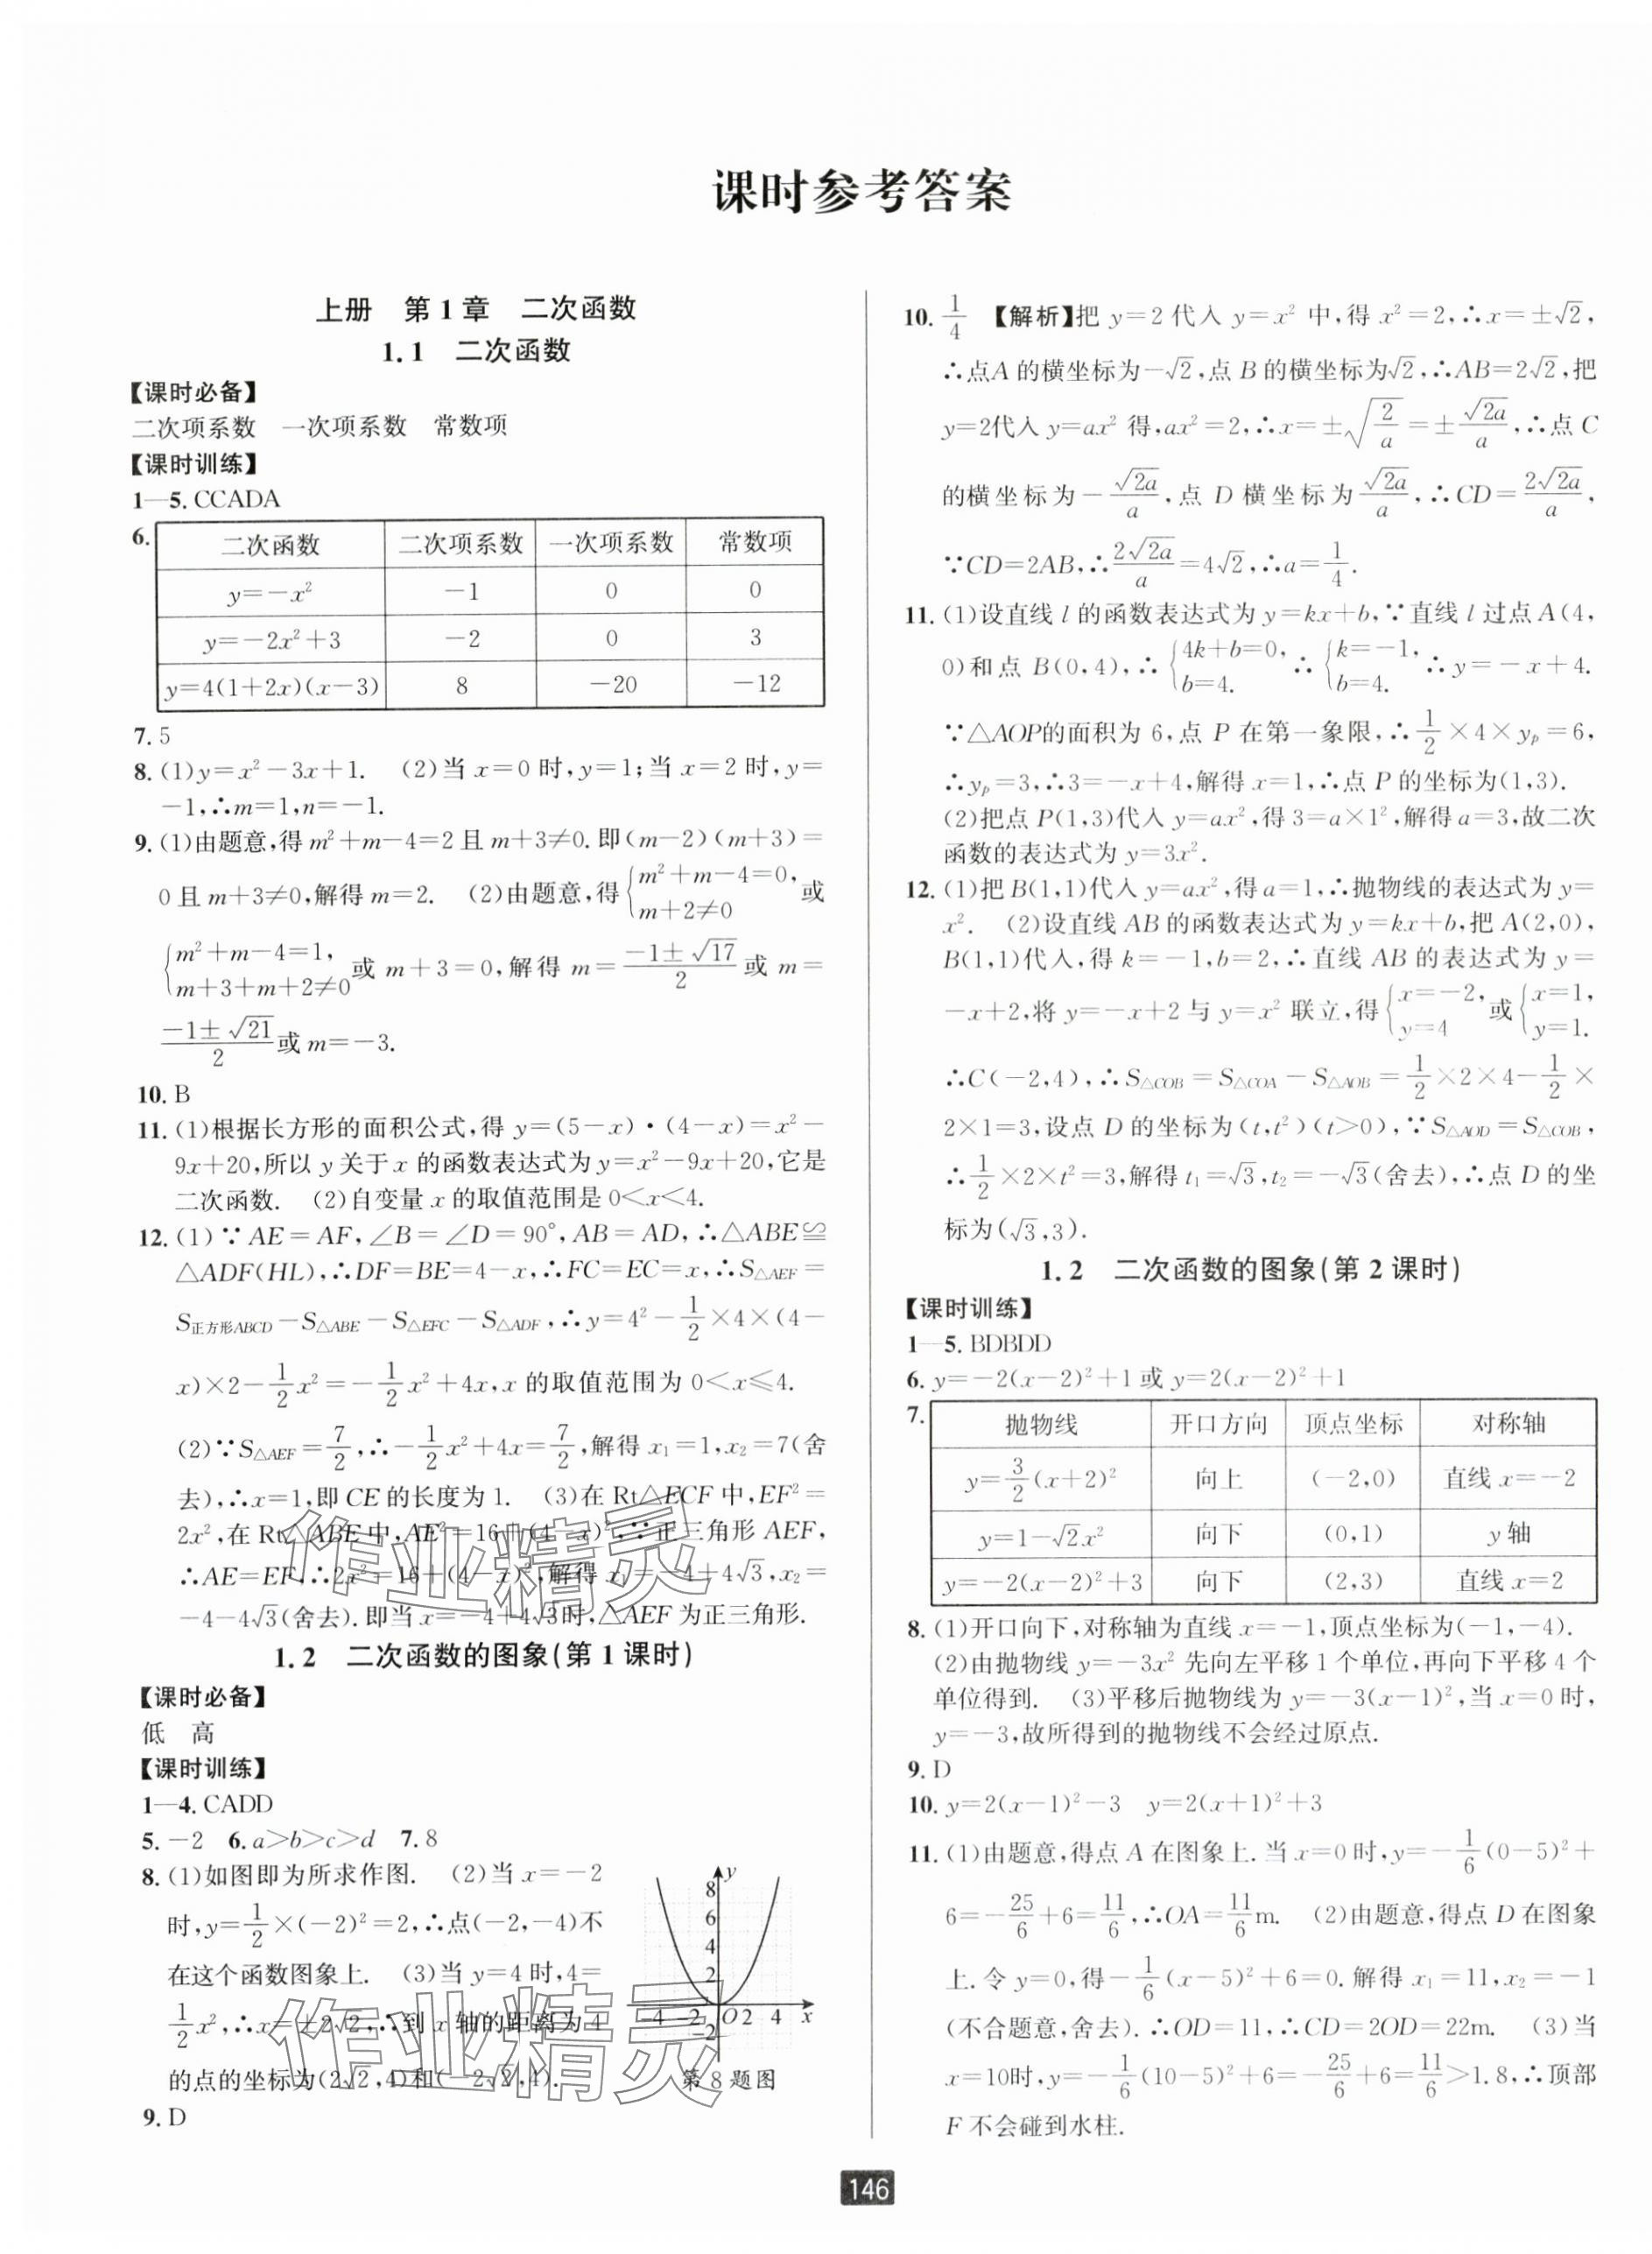 课时参考答案
上册 第1章 二次函数
1.1 二次函数
【课时必备】
二次项系数 一次项系数 常数项
【课时训练】
1—5. CCADA
6.
二次函数 二次项系数 一次项系数 常数项
y=-x² -1 0 0
y=-2x²+3 -2 0 3
y=4(1+2x)(x-3) 8 -20 -12
7. 5
8. (1)y=x²-3x+1. (2)当 x=0 时,y=1;当 x=2 时,y=
-1,∴m=1,n=-1.
9. (1)由题意,得 m²+m-4=2 且 m+3≠0. 即(m-2)(m+3)=
0 且 m+3≠0,解得 m=2. (2)由题意,得{m²+m-4=0, m+2≠0 或
{m²+m-4=1, m+3+m+2≠0 或 m+3=0,解得 m=(-1±√17)/2 或 m=
(-1±√21)/2 或 m=-3.
10. B
11. (1)根据长方形的面积公式,得 y=(5-x)·(4-x)=x²-
9x+20,所以 y 关于 x 的函数表达式为 y=x²-9x+20,它是
二次函数. (2)自变量 x 的取值范围是 0<x<4.
12. (1)∵AE=AF,∠B=∠D=90°,AB=AD,∴△ABE≌
△ADF(HL),∴DF=BE=4-x,∴FC=EC=x,∴S△AEF=
S正方形ABCD-S△ABE-S△EFC-S△ADF,∴y=4²-1/2×4×(4-
x)×2-1/2x²=-1/2x²+4x,x 的取值范围为 0<x≤4.
(2)∵S△AEF=7/2,∴-1/2x²+4x=7/2,解得 x₁=1,x₂=7(舍
去),∴x=1,即 CE 的长度为 1. (3)在 Rt△ECF 中,EF²=
2x²,在 Rt△ABE 中,AE²=16+(4-x)²,∵正三角形 AEF,
∴AE=EF,∴2x²=16+(4-x)²,解得 x₁=-4+4√3,x₂=
-4-4√3(舍去). 即当 x=-4+4√3时,△AEF 为正三角形.
1.2 二次函数的图象(第1课时)
【课时必备】
低 高
【课时训练】
1—4. CADD
5. -2 6. a>b>c>d 7. 8
8. (1)如图即为所求作图. (2)当 x=-2
时,y=1/2×(-2)²=2,∴点(-2,-4)不
在这个函数图象上. (3)当 y=4 时,4=
1/2x²,∴x=±2√2,∴到 x 轴的距离为 4
的点的坐标为(2√2,4)和(-2√2,4).
y
8
6
4
2
-4 -2 O 2 4 x
-2
第 8 题图
9. D
10. 1/4 【解析】把 y=2 代入 y=x² 中,得 x²=2,∴x=±√2,
∴点A 的横坐标为-√2,点 B 的横坐标为√2,∴AB=2√2,把
y=2代入 y=ax² 得,ax²=2,∴x=±√(2/a)=±√2a/a,∴点 C
的横坐标为-√2a/a,点 D 横坐标为√2a/a,∴CD=2√2a/a,
∵CD=2AB,∴2√2a/a=4√2,∴a=1/4.
11. (1)设直线 l 的函数表达式为 y=kx+b,∵直线 l 过点 A(4,
0)和点 B(0,4),∴{4k+b=0, b=4. ∴{k=-1, b=4. ∴y=-x+4.
∵△AOP的面积为 6,点 P 在第一象限,∴1/2×4×yₚ=6,
∴yₚ=3,∴3=-x+4,解得 x=1,∴点 P 的坐标为(1,3).
(2)把点 P(1,3)代入 y=ax²,得 3=a×1²,解得 a=3,故二次
函数的表达式为 y=3x².
12. (1)把 B(1,1)代入 y=ax²,得 a=1,∴抛物线的表达式为 y=
x². (2)设直线 AB 的函数表达式为 y=kx+b,把 A(2,0),
B(1,1)代入,得 k=-1,b=2,∴直线 AB 的表达式为 y=
-x+2,将 y=-x+2 与 y=x² 联立,得{x=-2, y=4 或{x=1, y=1.
∴C(-2,4),∴S△COB=S△COA-S△AOB=1/2×2×4-1/2×
2×1=3,设点 D 的坐标为(t,t²)(t>0),∵S△AOD=S△COB,
∴1/2×2×t²=3,解得 t₁=√3,t₂=-√3(舍去),∴点 D 的坐
标为(√3,3).
1.2 二次函数的图象(第2课时)
【课时训练】
1—5. BDBDD
6. y=-2(x-2)²+1 或 y=2(x-2)²+1
7.
抛物线 开口方向 顶点坐标 对称轴
y=3/2(x+2)² 向上 (-2,0) 直线 x=-2
y=1-√2x² 向下 (0,1) y 轴
y=-2(x-2)²+3 向下 (2,3) 直线 x=2
8. (1)开口向下,对称轴为直线 x=-1,顶点坐标为(-1,-4).
(2)由抛物线 y=-3x² 先向左平移 1 个单位,再向下平移 4 个
单位得到. (3)平移后抛物线为 y=-3(x-1)²,当 x=0 时,
y=-3,故所得到的抛物线不会经过原点.
9. D
10. y=2(x-1)²-3 y=2(x+1)²+3
11. (1)由题意,得点 A 在图象上. 当 x=0时,y=-1/6(0-5)²+
6=-25/6+6=11/6,∴OA=11/6m. (2)由题意,得点 D 在图象
上. 令 y=0,得-1/6(x-5)²+6=0. 解得 x₁=11,x₂=-1
(不合题意,舍去). ∴OD=11,∴CD=2OD=22m. (3)当
x=10时,y=-1/6(10-5)²+6=-25/6+6=11/6>1.8,∴顶部
F 不会碰到水柱.
146
作业精灵
作业精灵